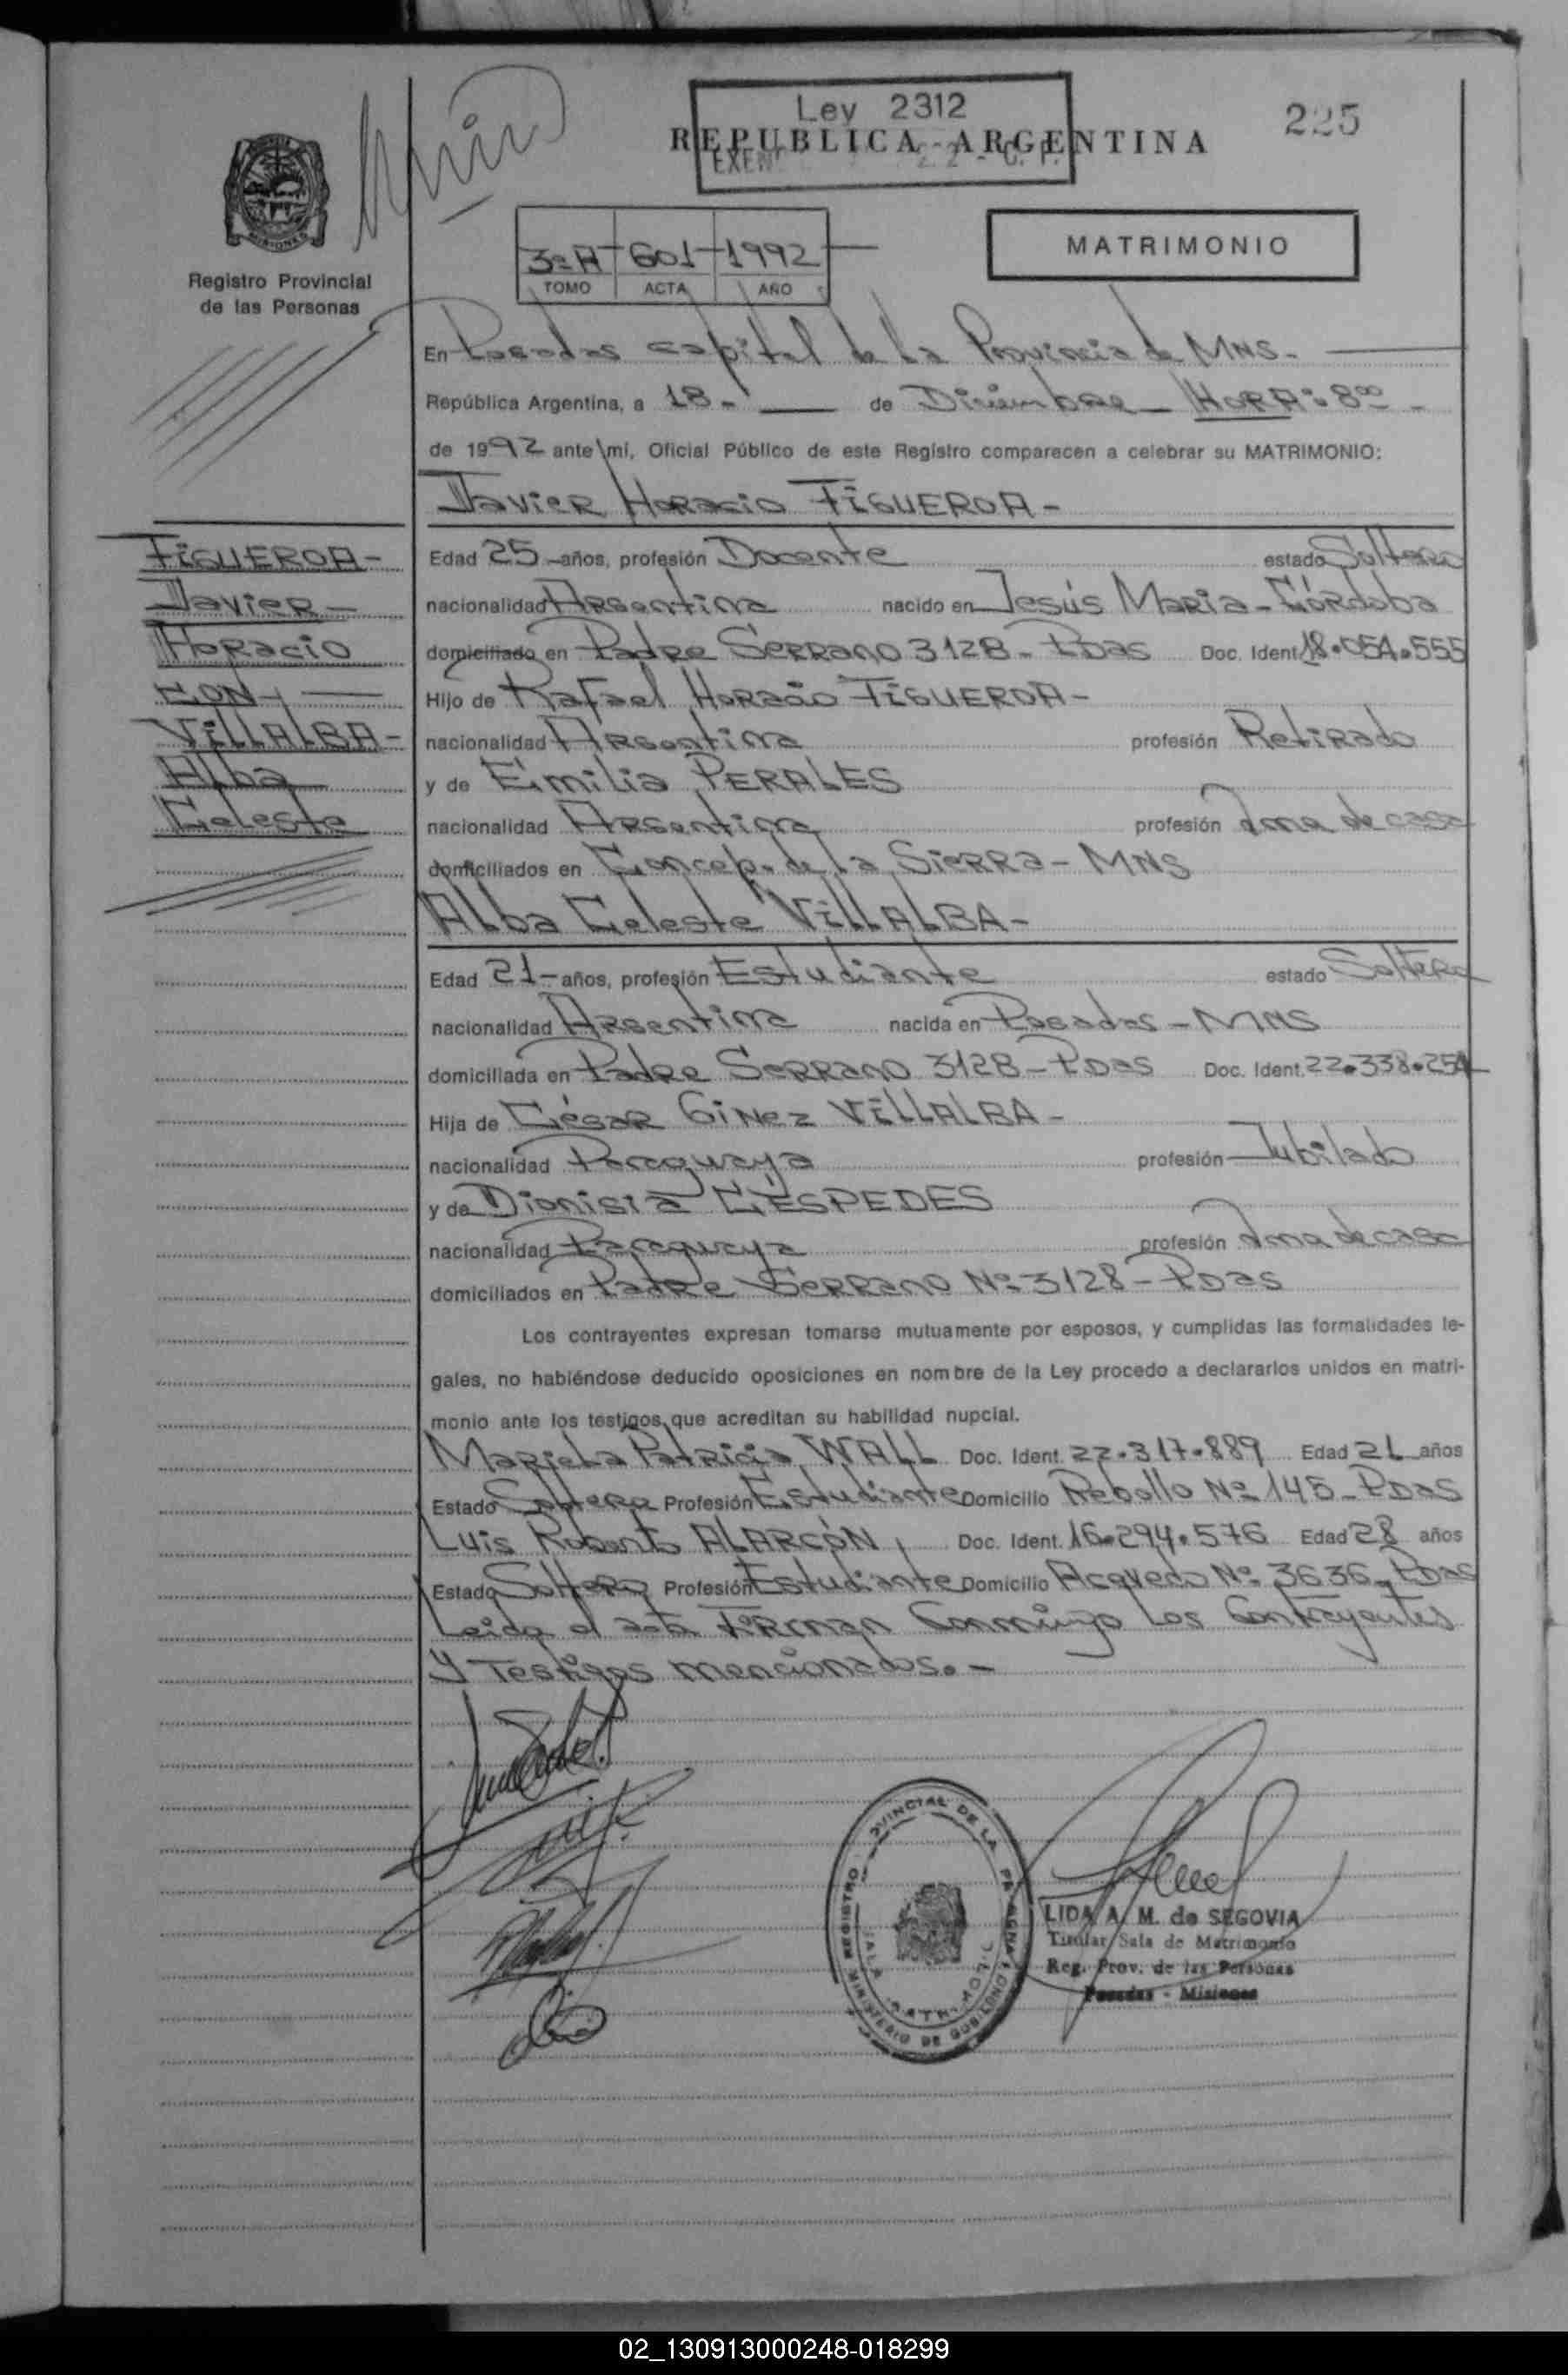 Ley 2312
225
REPUBLICA ARGENTINA
MISIONES
Registro Provincial
de las Personas
3º A 601 1992
TOMO ACTA AÑO
MATRIMONIO
En Posadas capital de la Provincia de MNS.-
República Argentina, a 18.- de Diciembre - HORA: 8⁰⁰ -
de 1992 ante mi, Oficial Público de este Registro comparecen a celebrar su MATRIMONIO:
Javier Horacio FIGUEROA -
FIGUEROA -
Javier -
Horacio
CON -
VILLALBA -
Alba
Celeste
Edad 25 - años, profesión Docente estado Soltero
nacionalidad Argentina nacido en Jesús María - Córdoba
domiciliado en Padre Serrano 3128 - Pdas Doc. Ident. 18.054.555
Hijo de Rafael Horacio FIGUEROA -
nacionalidad Argentina profesión Retirado
y de Emilia PERALES
nacionalidad Argentina profesión Ama de casa
domiciliados en Concep. de la Sierra - MNS
Alba Celeste VILLALBA -
Edad 21 - años, profesión Estudiante estado Soltera
nacionalidad Argentina nacida en Posadas - MNS
domiciliada en Padre Serrano 3128 - Pdas Doc. Ident. 22.338.254
Hija de César Ginez VILLALBA -
nacionalidad Paraguaya profesión Jubilado
y de Dionisia CÉSPEDES
nacionalidad Paraguaya profesión Ama de casa
domiciliados en Padre Serrano Nº 3128 - Pdas
Los contrayentes expresan tomarse mutuamente por esposos, y cumplidas las formalidades le-
gales, no habiéndose deducido oposiciones en nombre de la Ley procedo a declararlos unidos en matri-
monio ante los testigos que acreditan su habilidad nupcial.
Mariela Patricia WALL Doc. Ident. 22.317.889 Edad 21 años
Estado Soltera Profesión Estudiante Domicilio Rebollo Nº 145 - Pdas
Luis Roberto ALARCÓN Doc. Ident. 16.294.576 Edad 28 años
Estado Soltero Profesión Estudiante Domicilio Acevedo Nº 3636 - Pdas
Leida el acta firman conmigo los contrayentes
y testigos mencionados. -
LIDA A. M. de SEGOVIA
Titular Sala de Matrimonio
Reg. Prov. de las Personas
Posadas - Misiones
02_130913000248-018299